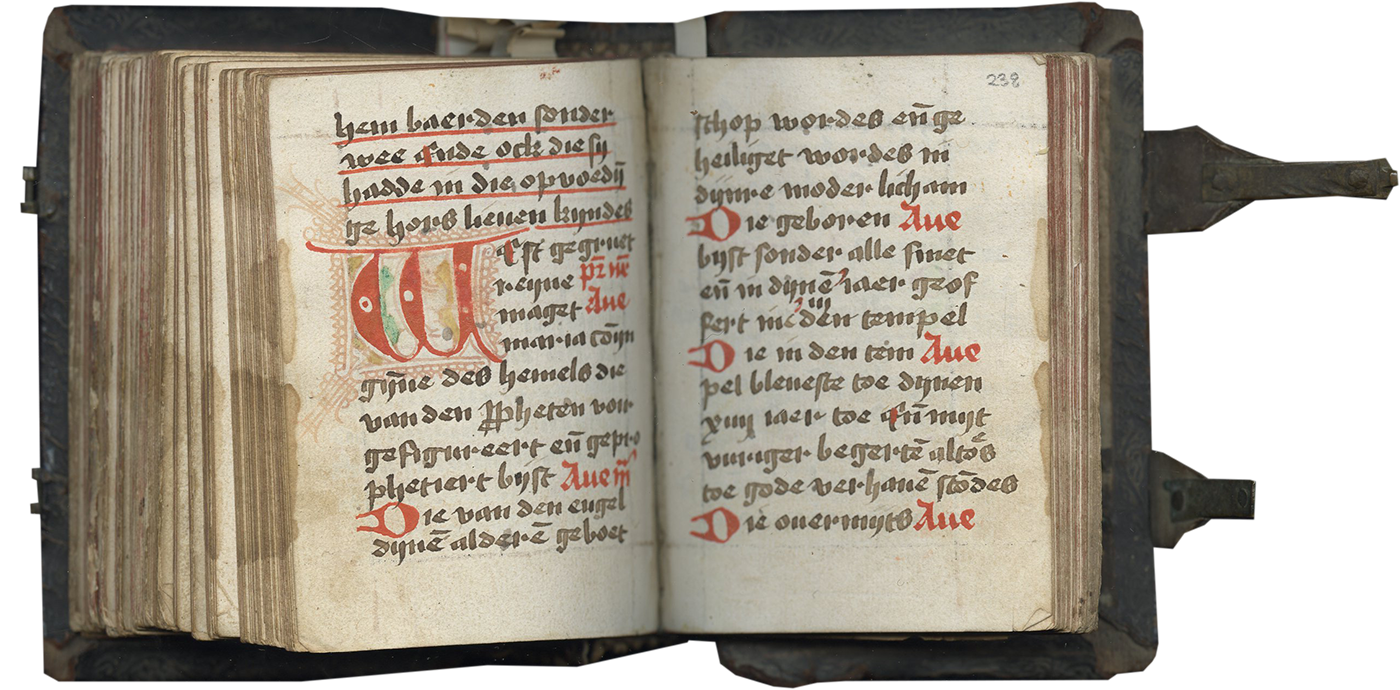 hem baerden sonder
wee Ende ock die sy
hadde in die opvoedij
ge hors lieuen kyndes
West gegruet
reyne pr nr
maget Aue
maria coīn
gyñe des hemels die
van den ꝓpheten voir
gefigureert eñ gepro
phetiert byst Aue m
Die van den engel
dijnē alderē geboet
238
schop wordes eñ ge
heiliget wordes in
dijnre moder licham
Die geboren Aue
byst sonder alle sinet
eñ in dijnē iii iaer geof
fert in den tempel
Die in den tem Aue
pel bleueste toe dijnen
xiiij iaer toe Eñ mijt
vuriger begertē altoēs
toe gode verhauē stōdes
Die ouermijts Aue